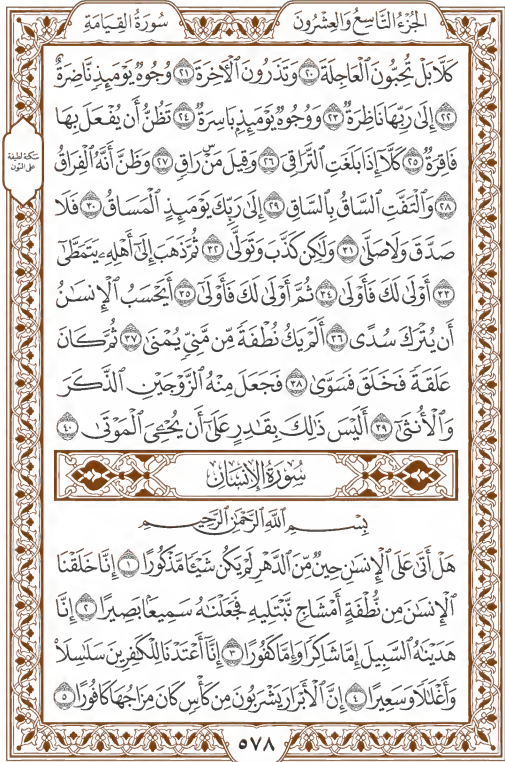 الجُزْءُ التَّاسِعُ وَالعِشْرُونَ
سُورَةُ القِيَامَةِ
كَلَّا بَلْ تُحِبُّونَ ٱلْعَاجِلَةَ ۝٢٠ وَتَذَرُونَ ٱلْأٓخِرَةَ ۝٢١ وُجُوهٌ يَوْمَئِذٍ نَّاضِرَةٌ
۝٢٢ إِلَىٰ رَبِّهَا نَاظِرَةٌ ۝٢٣ وَوُجُوهٌ يَوْمَئِذٍۭ بَاسِرَةٌ ۝٢٤ تَظُنُّ أَن يُفْعَلَ بِهَا
فَاقِرَةٌ ۝٢٥ كَلَّآ إِذَا بَلَغَتِ ٱلتَّرَاقِيَ ۝٢٦ وَقِيلَ مَنْۜ رَاقٍ ۝٢٧ وَظَنَّ أَنَّهُ ٱلْفِرَاقُ
۝٢٨ وَٱلْتَفَّتِ ٱلسَّاقُ بِٱلسَّاقِ ۝٢٩ إِلَىٰ رَبِّكَ يَوْمَئِذٍ ٱلْمَسَاقُ ۝٣٠ فَلَا
صَدَّقَ وَلَا صَلَّىٰ ۝٣١ وَلَٰكِن كَذَّبَ وَتَوَلَّىٰ ۝٣٢ ثُمَّ ذَهَبَ إِلَىٰٓ أَهْلِهِۦ يَتَمَطَّىٰٓ
۝٣٣ أَوْلَىٰ لَكَ فَأَوْلَىٰ ۝٣٤ ثُمَّ أَوْلَىٰ لَكَ فَأَوْلَىٰٓ ۝٣٥ أَيَحْسَبُ ٱلْإِنسَٰنُ
أَن يُتْرَكَ سُدًى ۝٣٦ أَلَمْ يَكُ نُطْفَةً مِّن مَّنِىٍّ يُمْنَىٰ ۝٣٧ ثُمَّ كَانَ
عَلَقَةً فَخَلَقَ فَسَوَّىٰ ۝٣٨ فَجَعَلَ مِنْهُ ٱلزَّوْجَيْنِ ٱلذَّكَرَ
وَٱلْأُنثَىٰٓ ۝٣٩ أَلَيْسَ ذَٰلِكَ بِقَٰدِرٍ عَلَىٰٓ أَن يُحْـِۧىَ ٱلْمَوْتَىٰ ۝٤٠
سكتة لطيفة
على النون
سُورَةُ الإِنسَانِ
بِسْمِ ٱللَّهِ ٱلرَّحْمَٰنِ ٱلرَّحِيمِ
هَلْ أَتَىٰ عَلَى ٱلْإِنسَٰنِ حِينٌ مِّنَ ٱلدَّهْرِ لَمْ يَكُن شَيْـًٔا مَّذْكُورًا ۝١ إِنَّا خَلَقْنَا
ٱلْإِنسَٰنَ مِن نُّطْفَةٍ أَمْشَاجٍ نَّبْتَلِيهِ فَجَعَلْنَٰهُ سَمِيعًۢا بَصِيرًا ۝٢ إِنَّا
هَدَيْنَٰهُ ٱلسَّبِيلَ إِمَّا شَاكِرًا وَإِمَّا كَفُورًا ۝٣ إِنَّآ أَعْتَدْنَا لِلْكَٰفِرِينَ سَلَٰسِلَا۟
وَأَغْلَٰلًا وَسَعِيرًا ۝٤ إِنَّ ٱلْأَبْرَارَ يَشْرَبُونَ مِن كَأْسٍ كَانَ مِزَاجُهَا كَافُورًا ۝٥
٥٧٨